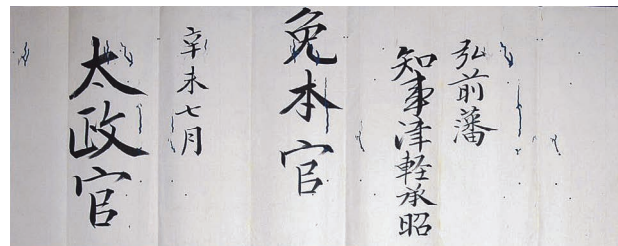 弘前藩
知事津軽承昭
免本官
辛未七月
太政官